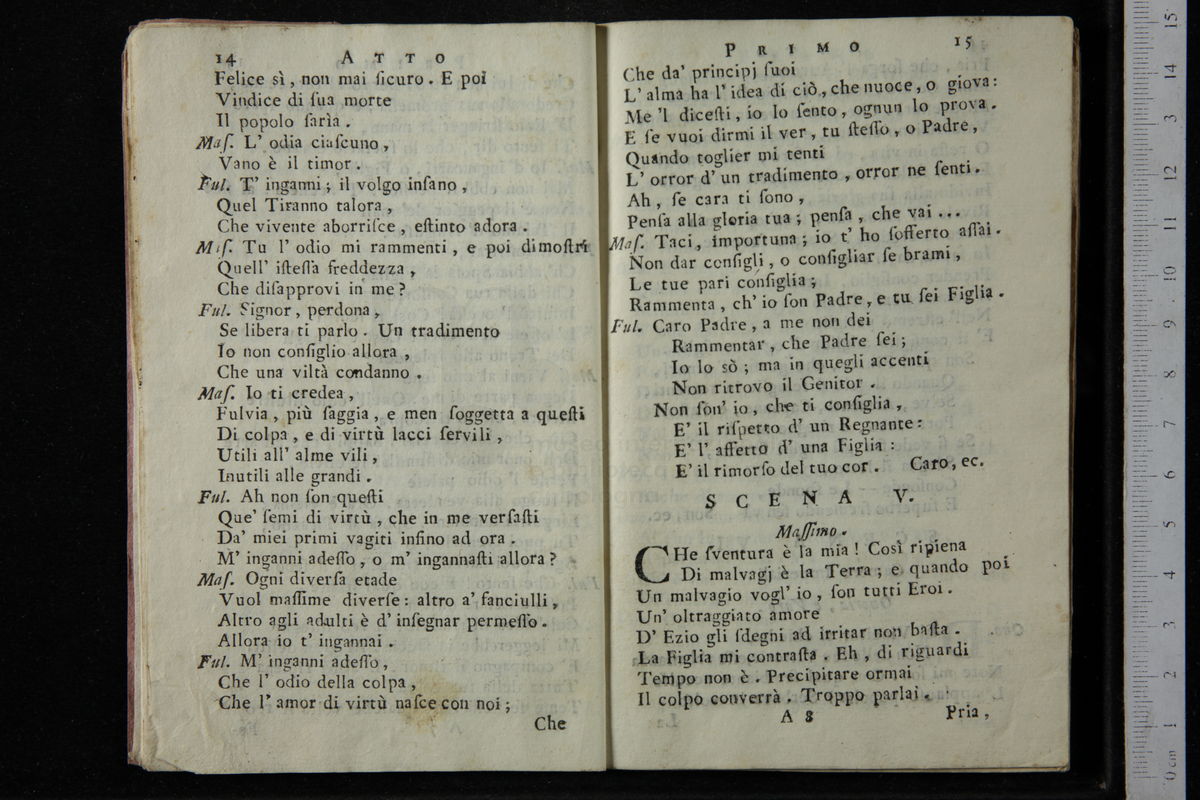 14 ATTO
Felice sì, non mai ſicuro. E poi
Vindice di ſua morte
Il popolo ſarìa.
Maſ. L' odia ciaſcuno,
Vano è il timor.
Ful. T' inganni; il volgo inſano,
Quel Tiranno talora,
Che vivente aborriſce, eſtinto adora.
Maſ. Tu l' odio mi rammenti, e poi dimoſtri
Quell' iſteſſa freddezza,
Che diſapprovi in me?
Ful. Signor, perdona,
Se libera ti parlo. Un tradimento
Io non conſiglio allora,
Che una viltà condanno.
Maſ. Io ti credea,
Fulvia, più ſaggia, e men ſoggetta a queſti
Di colpa, e di virtù lacci ſervili,
Utili all' alme vili,
Inutili alle grandi.
Ful. Ah non ſon queſti
Que' ſemi di virtù, che in me verſaſti
Da' miei primi vagiti inſino ad ora.
M' inganni adeſſo, o m' ingannaſti allora?
Maſ. Ogni diverſa etade
Vuol maſſime diverſe: altro a' fanciulli,
Altro agli adulti è d' inſegnar permeſſo.
Allora io t' ingannai.
Ful. M' inganni adeſſo,
Che l' odio della colpa,
Che l' amor di virtù naſce con noi;
Che
PRIMO 15
Che da' principj ſuoi
L' alma ha l' idea di ciò, che nuoce, o giova:
Me 'l diceſti, io lo ſento, ognun lo prova.
E ſe vuoi dirmi il ver, tu ſteſſo, o Padre,
Quando toglier mi tenti
L' orror d' un tradimento, orror ne ſenti.
Ah, ſe cara ti ſono,
Penſa alla gloria tua; penſa, che vai...
Maſ. Taci, importuna; io t' ho ſofferto aſſai.
Non dar conſigli, o conſigliar ſe brami,
Le tue pari conſiglia;
Rammenta, ch' io ſon Padre, e tu ſei Figlia.
Ful. Caro Padre, a me non dei
Rammentar, che Padre ſei;
Io lo sò; ma in quegli accenti
Non ritrovo il Genitor.
Non ſon' io, che ti conſiglia,
E' il riſpetto d' un Regnante:
E' l' affetto d' una Figlia:
E' il rimorſo del tuo cor. Caro, ec.
SCENA V.
Maſſimo.
CHe ſventura è la mia! Così ripiena
Di malvagj è la Terra; e quando poi
Un malvagio vogl' io, ſon tutti Eroi.
Un' oltraggiato amore
D' Ezio gli ſdegni ad irritar non baſta.
La Figlia mi contraſta. Eh, di riguardi
Tempo non è. Precipitare ormai
Il colpo converrà. Troppo parlai.
A 8 Pria,